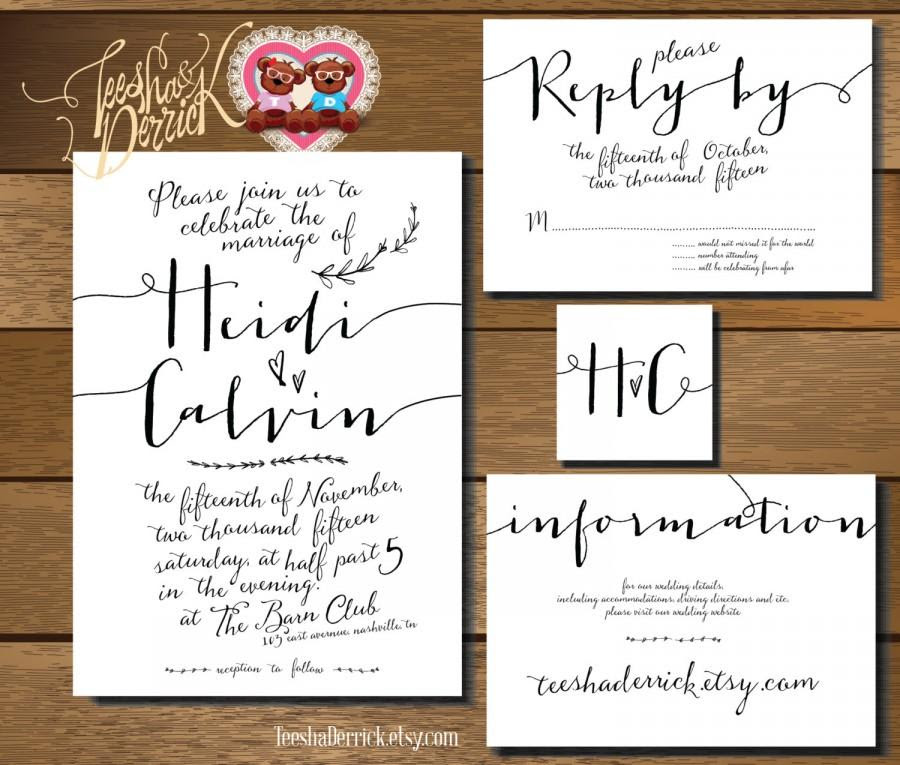 Teesha &
Derrick
T D
Please join us to
celebrate the
marriage of
Heidi
Calvin
the fifteenth of November,
two thousand fifteen
saturday, at half past 5
in the evening.
at The Barn Club
103 east avenue, nashville, tn
reception to follow
please
Reply by
the fifteenth of October,
two thousand fifteen
M
......... would not missed it for the world
......... number attending
......... will be celebrating from afar
H C
information
for our wedding details,
including accommodations, driving directions and etc.
please visit our wedding website
teeshaderrick.etsy.com
TeeshaDerrick.etsy.com